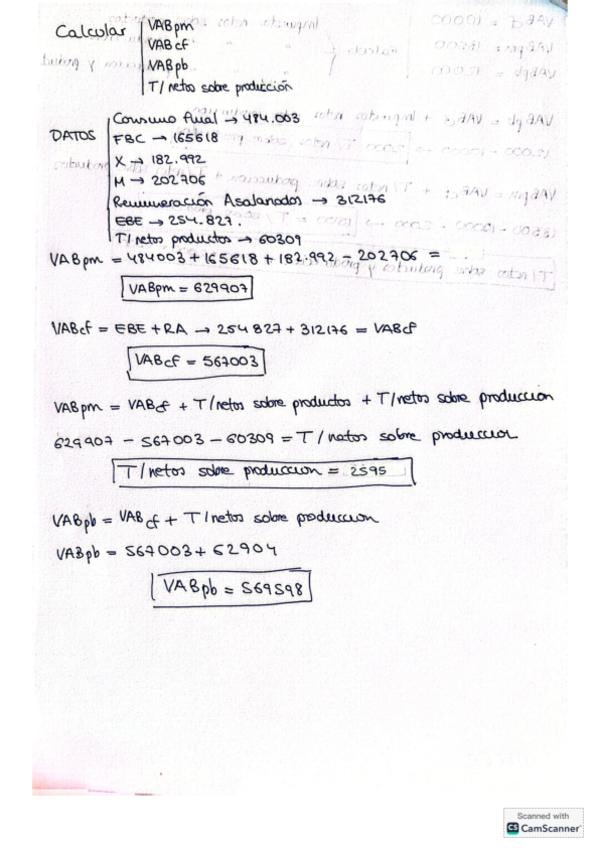 Calcular
VABpm
VABcf
VABpb
T/netos sobre producción
DATOS
Consumo Final → 484.003
FBC → 165618
X → 182.992
M → 202706
Remuneración Asalariados → 312176
EBE → 254.827.
T/netos productos → 60309
VABpm = 484003 + 165618 + 182.992 - 202706 =
VABpm = 629907
VABcf = EBE + RA → 254827 + 312176 = VABcf
VABcf = 567003
VABpm = VABcf + T/netos sobre productos + T/netos sobre producción
629907 - 567003 - 60309 = T/netos sobre produccion
T/netos sobre produccion = 2595
VABpb = VABcf + T/netos sobre produccion
VABpb = 567003 + 62904
VABpb = 569598
Scanned with
CS CamScanner